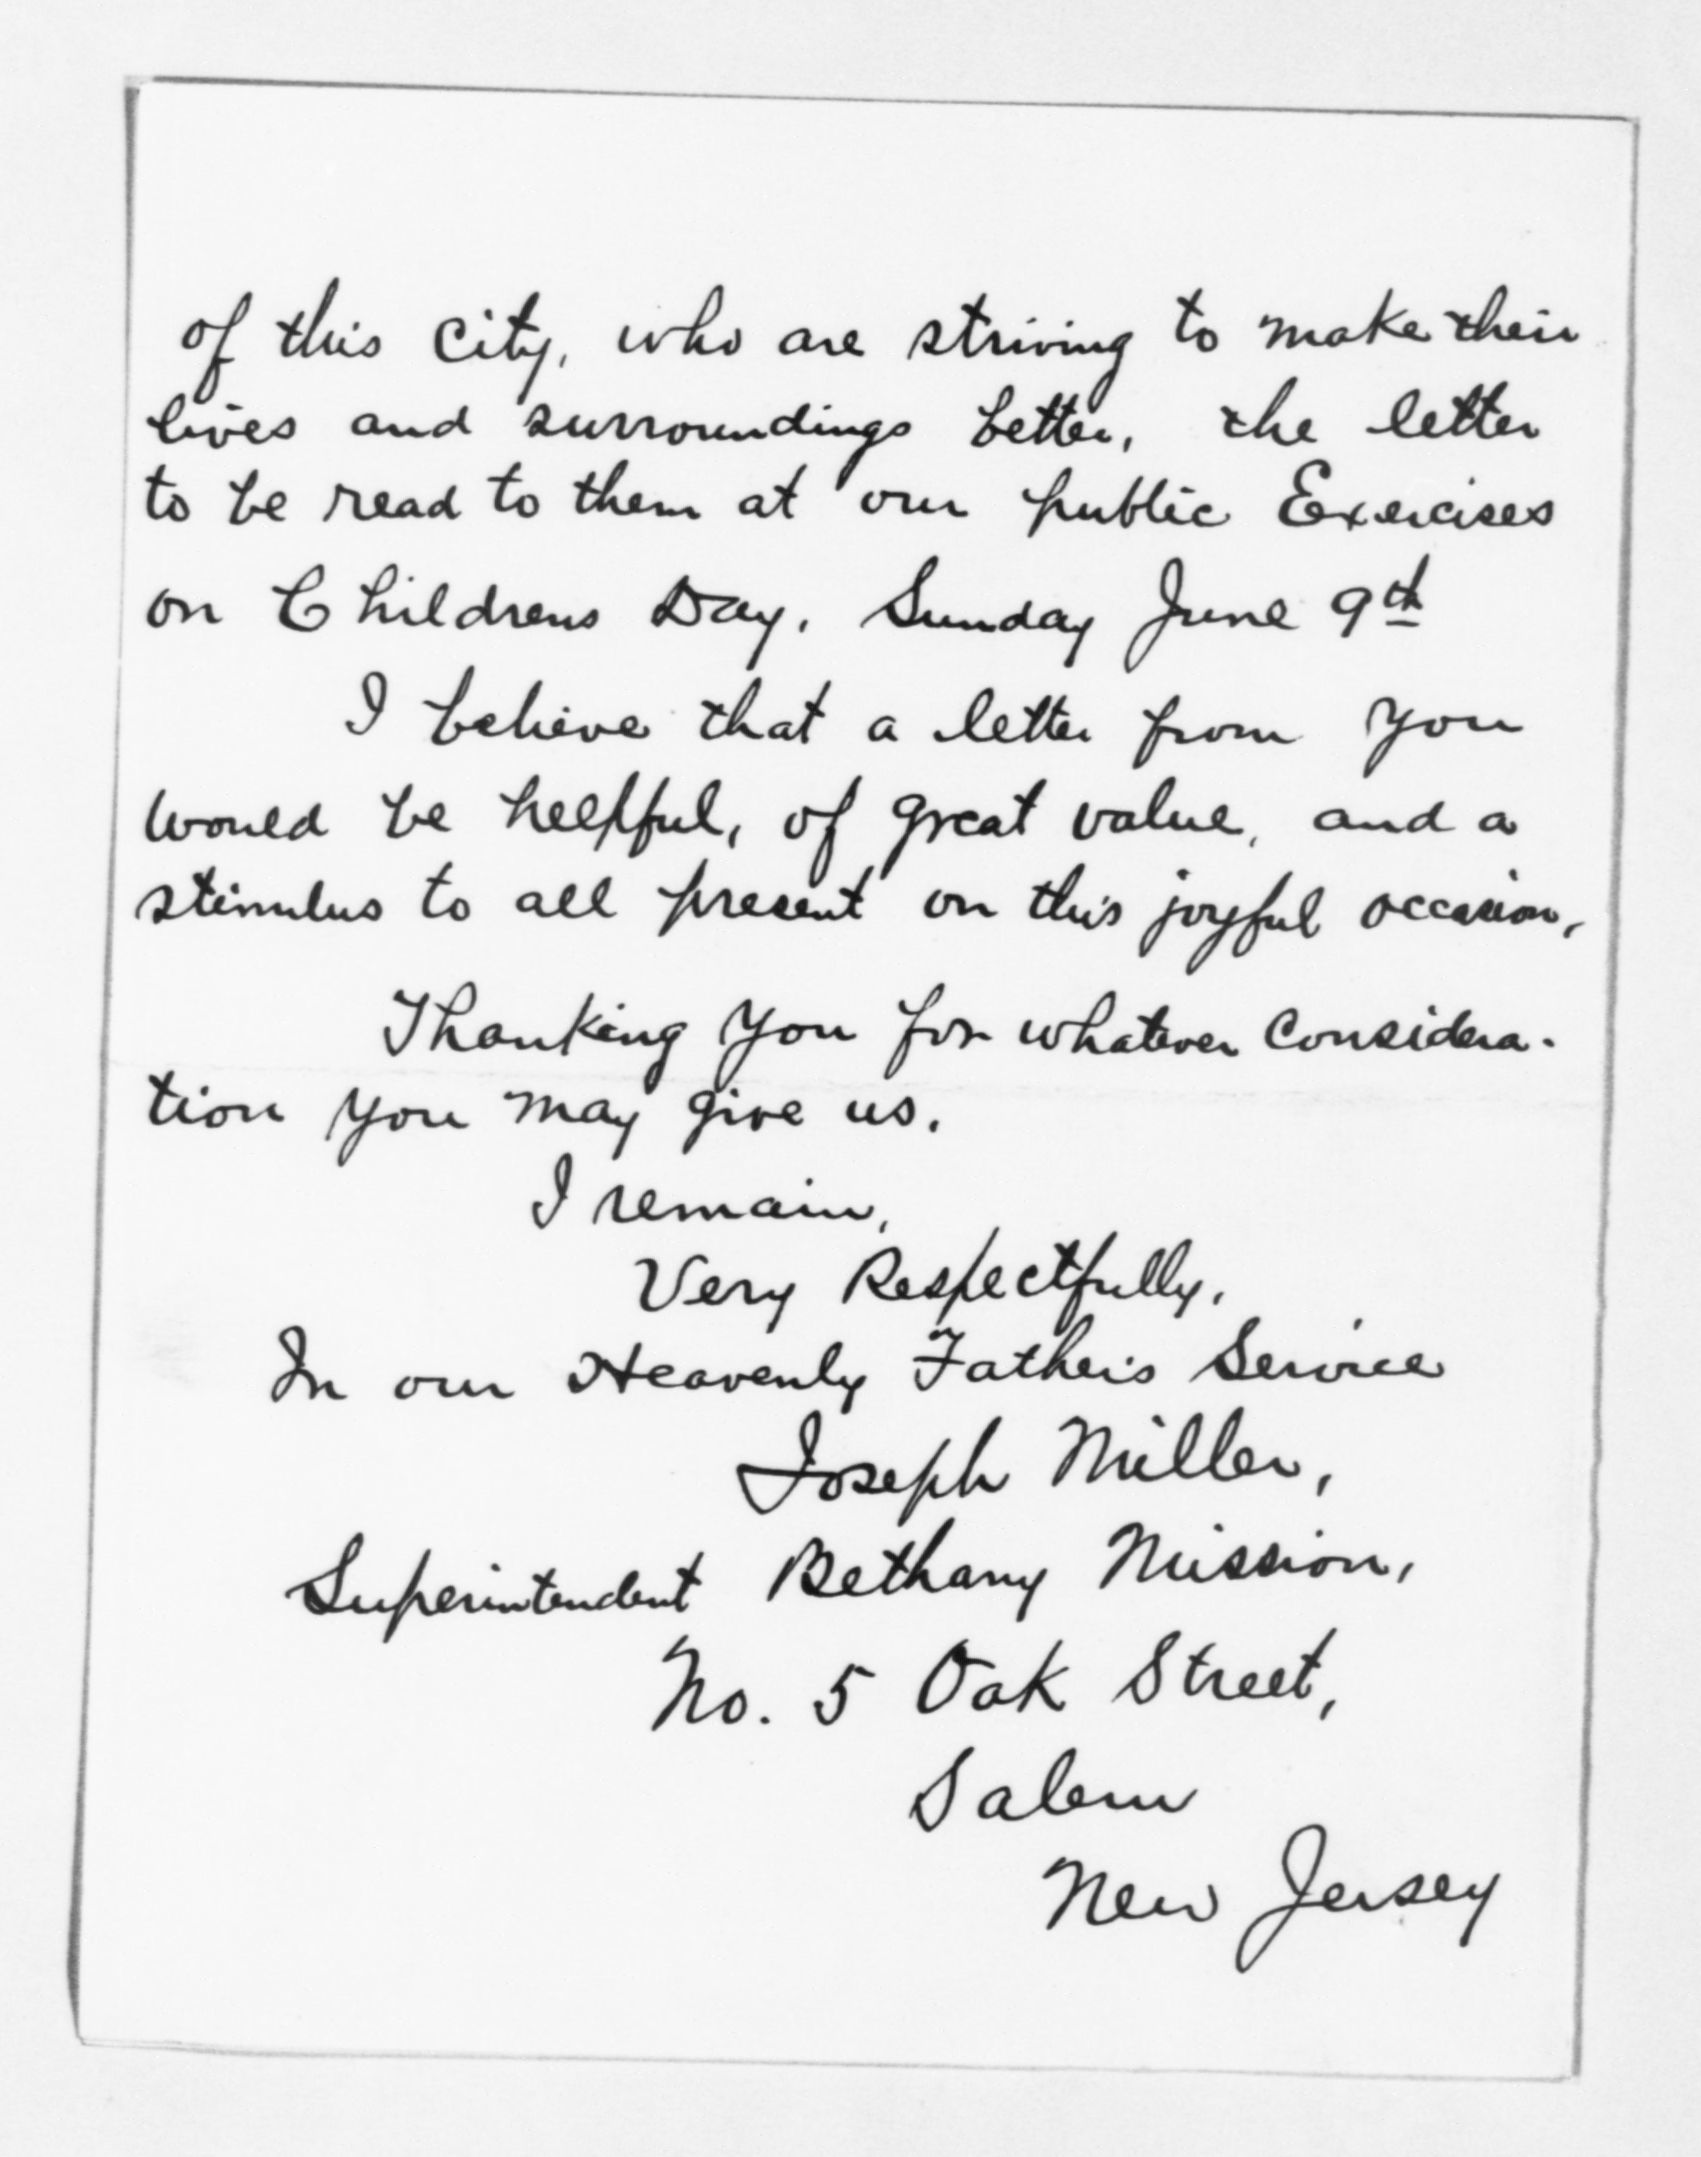 of this City, who are striving to make their
lives and surroundings better, the letter
to be read to them at our public Exercises
on Childrens Day, Sunday June 9th
I believe that a letter from you
would be helpful, of great value, and a
stimulus to all present on this joyful occasion,
Thanking you for whatever Considera-
tion you may give us.
I remain,
Very Respectfully,
In our Heavenly Father's Service
Joseph Miller,
Superintendent Bethany Mission,
No. 5 Oak Street,
Salem
New Jersey